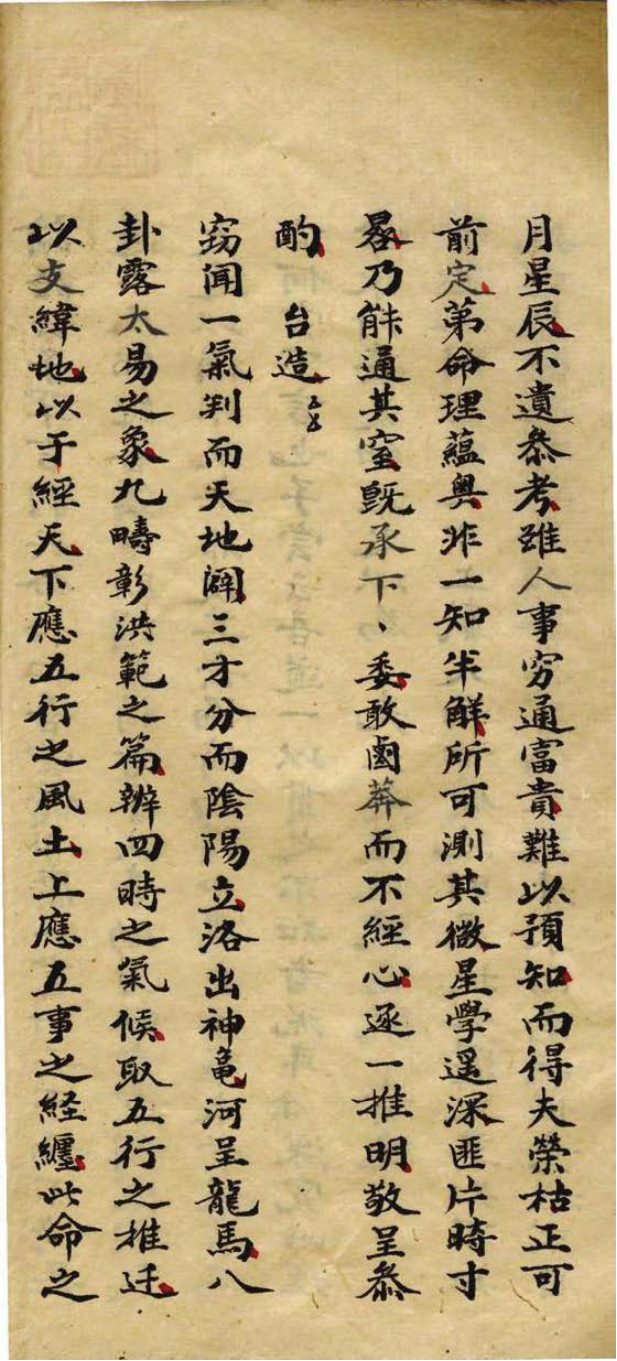 月星辰不遺叅考雖人事穷通富貴難以預知而得夫榮枯正可
前定苐命理蘊奧非一知半觧所可測其微星學遥深匪片時寸
晷乃能通其窒既承下、委敢鹵莽而不經心逐一推明敬呈叅
酌 台造
窃闻一氣判而天地闢三才分而陰陽立洛出神龟河呈龍馬八
卦露太易之象九疇彰洪範之篇辨四時之氣候取五行之推迁
以支緯地以于經天下應五行之風土上應五事之経纏此命之